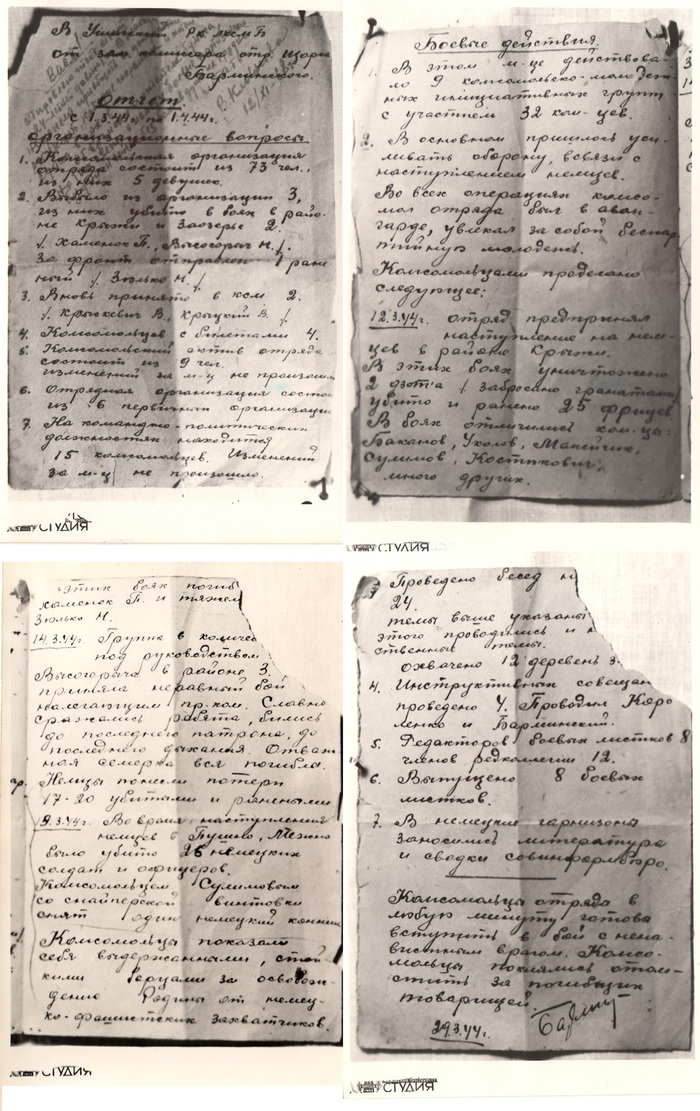 В Ушачский Рк лксмБ
от зам. комиссара отр. Щорса
Барминского.
Отчет
с 1.3.44г. по 1.4.44г.
Организационные вопросы
1. Комсомольская организация
отряда состоит из 73 чел.,
из них 5 девушек.
2. Выбыло из организации 3,
из них убито в боях в райо-
не Крыжи и Заозерье 2.
/. Хаменок П., Высогорыч Н. /.
За фронт отправлен 1 ране
ный /. Зюлько Н. /.
3. Вновь принято в ксм. 2.
/. Крыжевич В., Хрыцкий В. /.
4. Комсомольцев с билетами 4.
5. Комсомольский актив отряда
состоит из 9 чел.
изменений за м-ц не произошл
6. Отрядная организация состо
из 6 первичных организаци
7. На командно-политических
должностях находится
15 комсомольцев. Изменений
за м-ц не произошло.
СТУДИЯ
Боевые действия.
1. В этом м-це действова-
ло 9 комсомольско-молодеж
ных инициативных групп
с участием 32 ком-цев.
2. В основном пришлось уси-
ливать оборону, всвязи с
наступлением немцев.
Во всех операциях комсо-
мол отряда был в аван-
гарде, увлекая за собой беспар
тийную молодежь.
Комсомольцами проделано
следующее:
12.3.44г. отряд предпринял
наступление на нем-
цев в районе Крыжи.
В этих боях уничтожено
2 дзота / забросано гранатами
убито и ранено 25 фрицев.
В боях отличились ком-цы:
Баканов, Ухолов, Манейчик,
Сулимов, Костюкович,
много других.
СТУДИЯ
этих боях погиб
хаменок П. и тяжел
Зюлько Н.
14.3.44г. Группа в количес
под руководством
Высогорыча в районе З.
приняла неравный бой
налегающим пр-ком. Славно
сражались ребята, бились
до последнего патрона, до
последнего дыхания. Отваж-
ная семерка вся погибла.
Немцы понесли потери
17-20 убитыми и ранеными
19.3.44г. Во время наступления
немцев в Пушно, Межно
было убито 26 немецких
солдат и офицеров.
Комсомольцем Сулимовым
со снайперской винтовки
снят один немецкий конник
Комсомольцы показали
себя выдержанными, стой
кими борцами за освобож-
дение Родины от немец-
ко-фашистских захватчиков.
СТУДИЯ
3 Проведено бесед н
24.
темы выше указаны
этого проводились и н
ственные темы.
охвачено 12 деревень з.
4. Инструктивных совещан
проведено 4. Проводил Коро
ленко и Барминский.
5. Редакторов боевых листков 8
членов редколлегии 12.
6. Выпущено 8 боевых
листков.
7. В немецкие гарнизоны
заносились литература
и сводки совинформбюро.
Комсомольцы отряда в
любую минуту готова
вступить в бой с нена-
вистным врагом. Комсо-
мольцы поклялись отом-
стить за погибших
товарищей.
29.3.44г.
СТУДИЯ